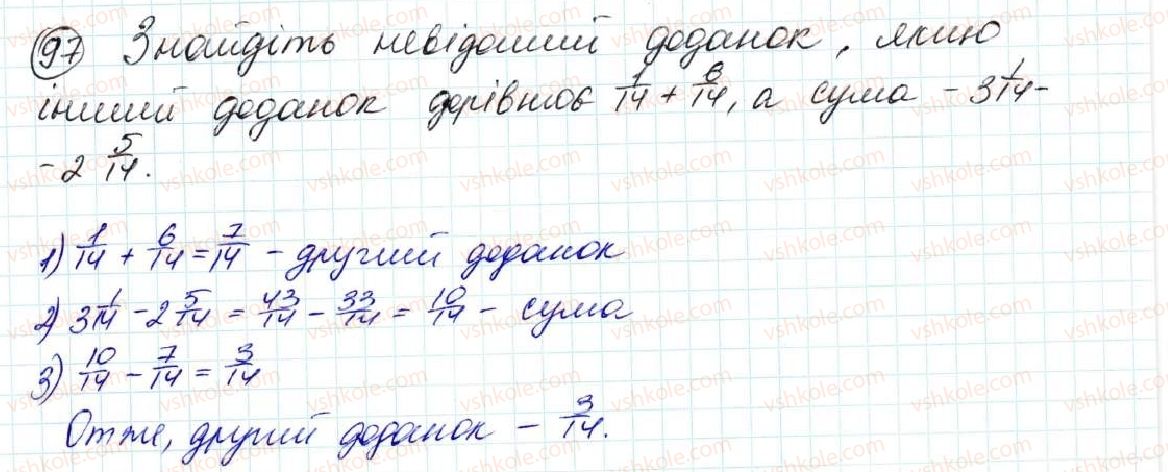 97 Знайдіть невідомий доданок, якщо
інший доданок дорівнює 1/14 + 6/14, а сума - 3 1/14 -
- 2 5/14.
1) 1/14 + 6/14 = 7/14 - другий доданок
2) 3 1/14 - 2 5/14 = 43/14 - 33/14 = 10/14 - сума
3) 10/14 - 7/14 = 3/14
Отже, другий доданок - 3/14.